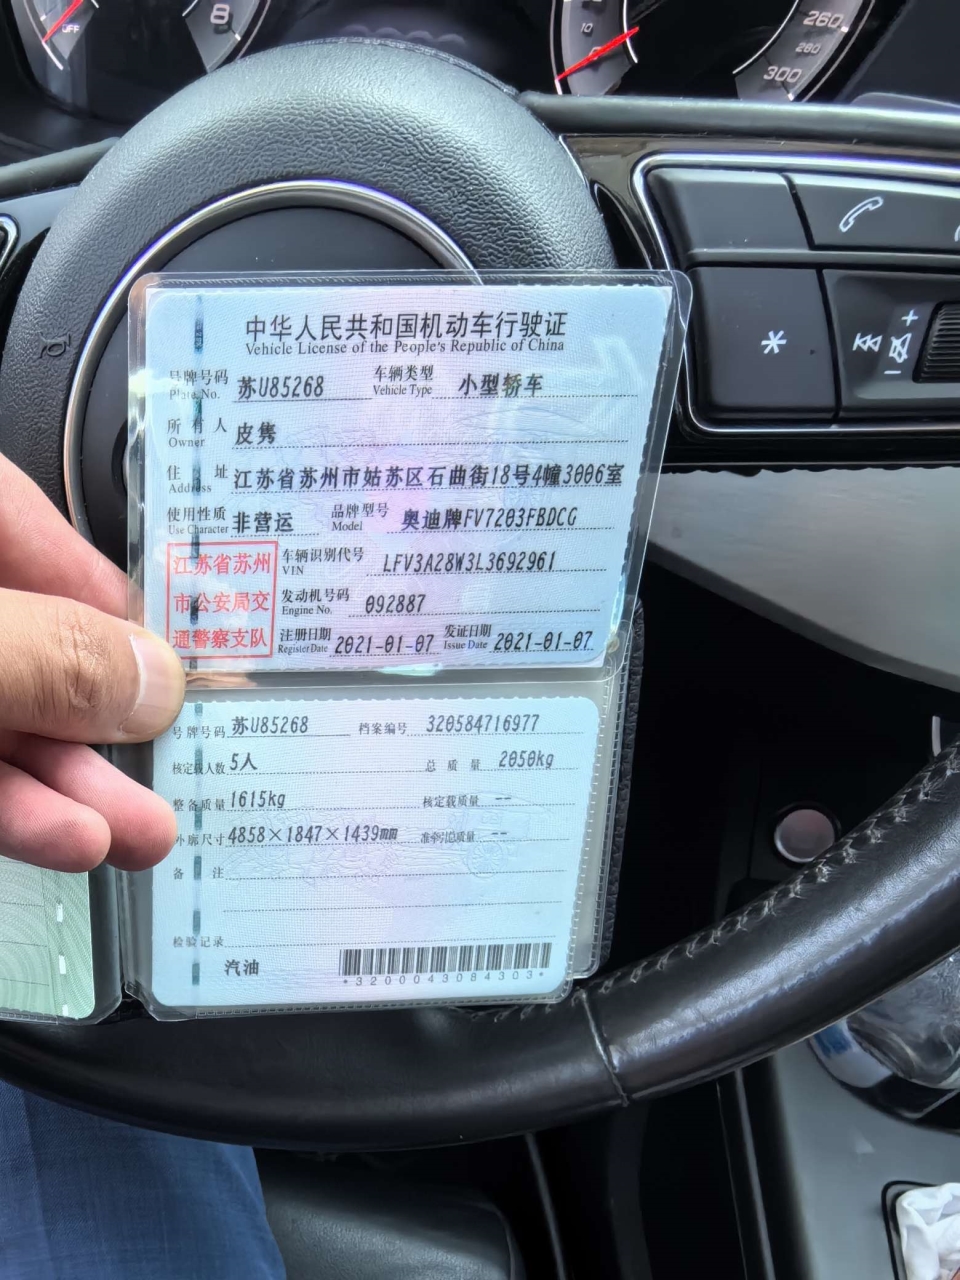 OFF
8
10
0
260
280
300
中华人民共和国机动车行驶证
Vehicle License of the People's Republic of China
号牌号码 苏U85268 车辆类型 小型轿车
Plate No. Vehicle Type
所有人 皮隽
Owner
住址 江苏省苏州市姑苏区石曲街18号4幢3006室
Address
使用性质 非营运 品牌型号 奥迪牌FV7203FBDCG
Use Character Model
江苏省苏州
市公安局交
通警察支队
车辆识别代号 LFV3A28W3L3692961
VIN
发动机号码 092887
Engine No.
注册日期 2021-01-07 发证日期 2021-01-07
Register Date Issue Date
号牌号码 苏U85268 档案编号 320584716977
核定载人数 5人 总质量 2050kg
整备质量 1615kg 核定载质量 --
外廓尺寸 4858×1847×1439mm 准牵引总质量 --
备注
检验记录
汽油
*3200043084303*